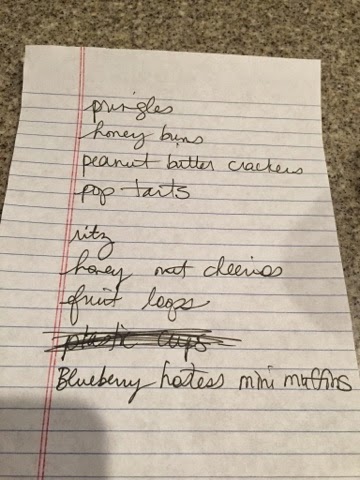 pringles
honey buns
peanut butter crackers
pop tarts
ritz
honey nut cheerios
fruit loops
plastic cups
Blueberry hostess mini muffins